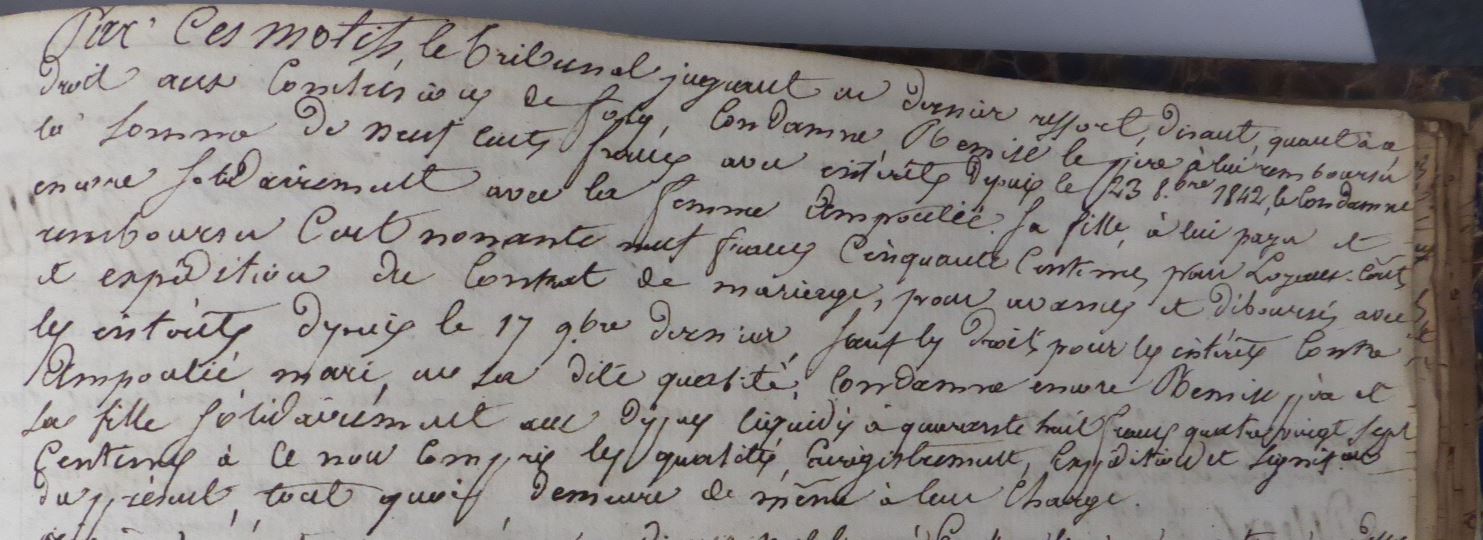 Par Ces motifs le Tribunal jugeant en dernier ressort, disant, quant à ce
droit aux Conclusions de Foly, Condamne Remise le père à lui rembourser
la somme de neuf cents francs avec intérêts depuis le 23 8.bre 1842, le Condamne
encore solidairement avec la femme Ampoulié, sa fille, à lui payer et
rembourser Cent nonante neuf francs Cinquante Centimes pour Loyaux-Coûts
et expédition du Contrat de mariage, pour avances et déboursés avec
les intérêts depuis le 17 9.bre dernier, sauf les droits pour les intérêts Contre
Ampoulié, mari, en sa dite qualité, Condamne encore Remise père et
sa fille solidairement aux dépens liquidés à quarante huit francs quatre vingt sept
Centimes à Ce non Compris les qualités, Enregistrement, Expédition et signif.on
du présent, tout quoi demeure de même à leur Charge.